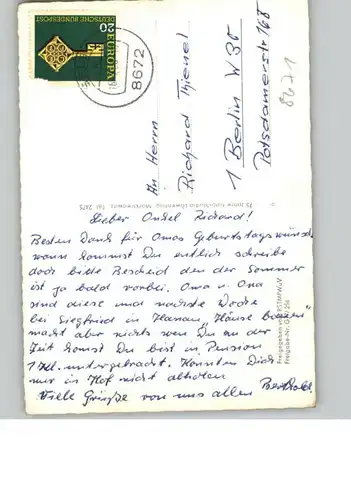 DEUTSCHE BUNDESPOST
EUROPA
20
8672
8671
An Herrn
Richard Thienel
1 Berlin W 35
Potsdamerstr 168
Lieber Onkel Richard!
Besten Dank für Omas Geburtstagswünsche
wann kommst Du endlich schreibe
doch bitte Bescheid den der Sommer
ist ja bald vorbei. Oma u. Opa
sind diese und nächste Woche
bei Siegfried in Hanau, "Häuse bauen"
macht aber nichts wen Du zu der
Zeit komst Du bist in Pension
1 Kl. untergebracht. Konnten Dich
nur in Hof nicht abholen
Viele Grüße von uns allen